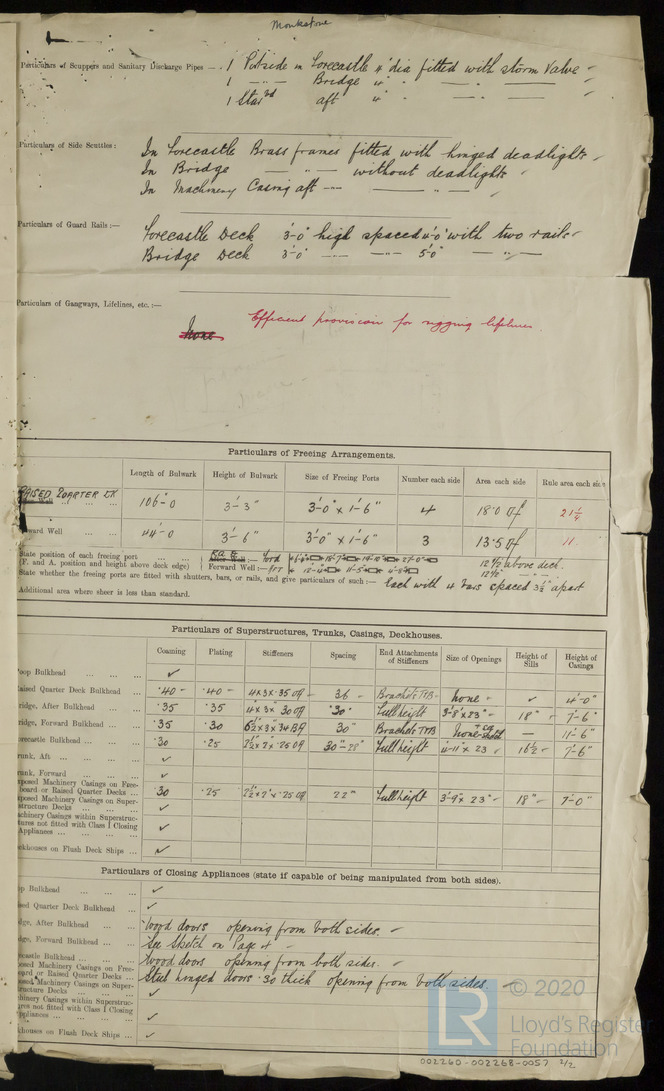 Monkstone
Particulars of Scuppers and Sanitary Discharge Pipes — 1 Portside in Forecastle 4" dia fitted with storm valve
1 — " — Bridge 4" " — " —
1 Starbd aft 4" — " —
Particulars of Side Scuttles:
In Forecastle Brass frames fitted with hinged deadlights
In Bridge — " — without deadlights
In Machinery Casing aft — " —
Particulars of Guard Rails :—
Forecastle Deck 3'-0" high spaced 4'-0" with two rails
Bridge Deck 3'-0" — " — 5'-0" — " —
Particulars of Gangways, Lifelines, etc. :—
None
Efficient provision for rigging lifelines.
Particulars of Freeing Arrangements.
Length of Bulwark Height of Bulwark Size of Freeing Ports Number each side Area each side Rule area each side
RAISED QUARTER DK 106'-0 3'-3" 3'-0" x 1'-6" 4 18.0 21¼
ward Well 44'-0 3'-6" 3'-0" x 1'-6" 3 13.5 11.
State position of each freeing port
(F. and A. position and height above deck edge)
Forward Well :—
12½ above deck.
State whether the freeing ports are fitted with shutters, bars, or rails, and give particulars of such :— Each with 4 bars spaced 3½" apart
Additional area where sheer is less than standard.
Particulars of Superstructures, Trunks, Casings, Deckhouses.
Coaming Plating Stiffeners Spacing End Attachments of Stiffeners Size of Openings Height of Sills Height of Casings
oop Bulkhead ✓
aised Quarter Deck Bulkhead .40 .40 4x3x.35 36 Brackets T&B None ✓ 4'-0"
ridge, After Bulkhead .35 .35 4x3x.30 30" Full height 3'-8"x23" 18" 7'-6"
ridge, Forward Bulkhead .35 .30 6½x3x.34 BA 30" Brackets T&B None — 11'-6"
orecastle Bulkhead .30 .25 2½x2x.25 30"-28" Full height 4'-11"x23 16½ 7'-6"
runk, Aft ✓
runk, Forward ✓
xposed Machinery Casings on Free-
board or Raised Quarter Decks .30 .25 2½x2"x.25 22" Full height 3'-9"x23" 18" 7'-0"
xposed Machinery Casings on Super-
structure Decks ✓
achinery Casings within Superstruc-
tures not fitted with Class I Closing
Appliances ✓
ckhouses on Flush Deck Ships ✓
Particulars of Closing Appliances (state if capable of being manipulated from both sides).
op Bulkhead ✓
sed Quarter Deck Bulkhead ✓
dge, After Bulkhead Wood doors opening from both sides.
dge, Forward Bulkhead See Sketch on Page 4
castle Bulkhead Wood doors opening from both sides.
osed Machinery Casings on Free-
oard or Raised Quarter Decks Steel hinged doors .30 thick opening from both sides.
osed Machinery Casings on Super-
ructure Decks ✓
hinery Casings within Superstruc-
res not fitted with Class I Closing
ppliances ✓
khouses on Flush Deck Ships ✓
LR
© 2020
Lloyd's Register
Foundation
002260-002268-0057 2/2